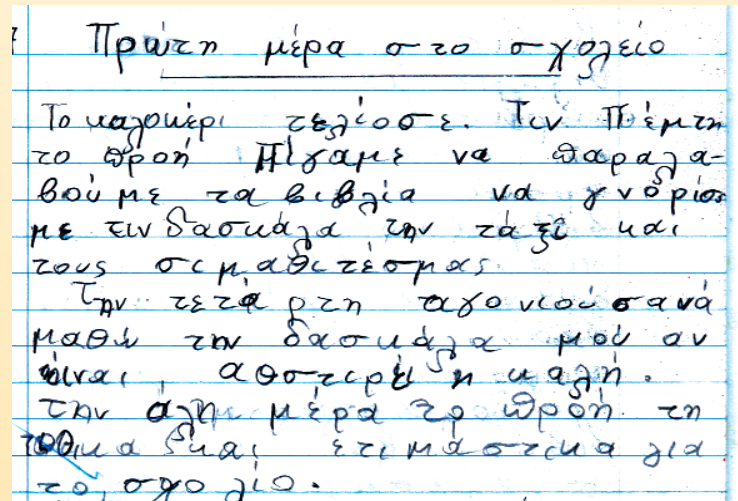 Πρώτη μέρα στο σχολείο
Το καλοκέρι τελίοσε. Τιν Πέμτη
το προή Πίγαμε να παραλα-
βούμε τα βιβλία να γνορίσου
με τιν δασκάλα την τάξι και
τους σιμαθιτέσμας.
Την τετάρτη αγονιούσα νά
μαθώ την δασκάλα μού αν
είναι, αφστιρή η καλή.
την άλη μέρα το προή τη
και ετιμάστικα για
το σχολίο.